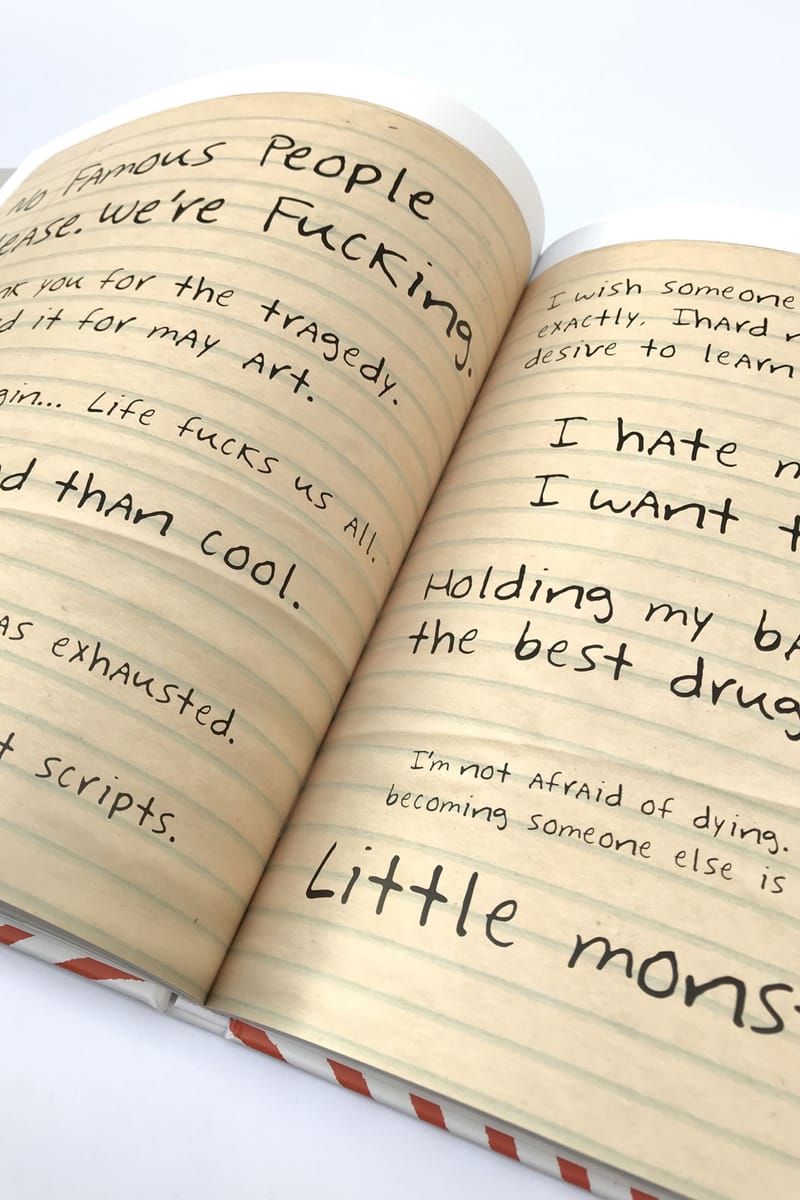 No Famous People
ease. We're Fucking.
nk you for the tragedy.
d it for may Art.
gin... Life fucks us All.
d than cool.
as exhausted.
t scripts.
I wish someone
exactly. Ihard
desive to learn
I hate
I want t
Holding my ba
the best drug
I'm not Afraid of dying.
becoming someone else is
Little mons